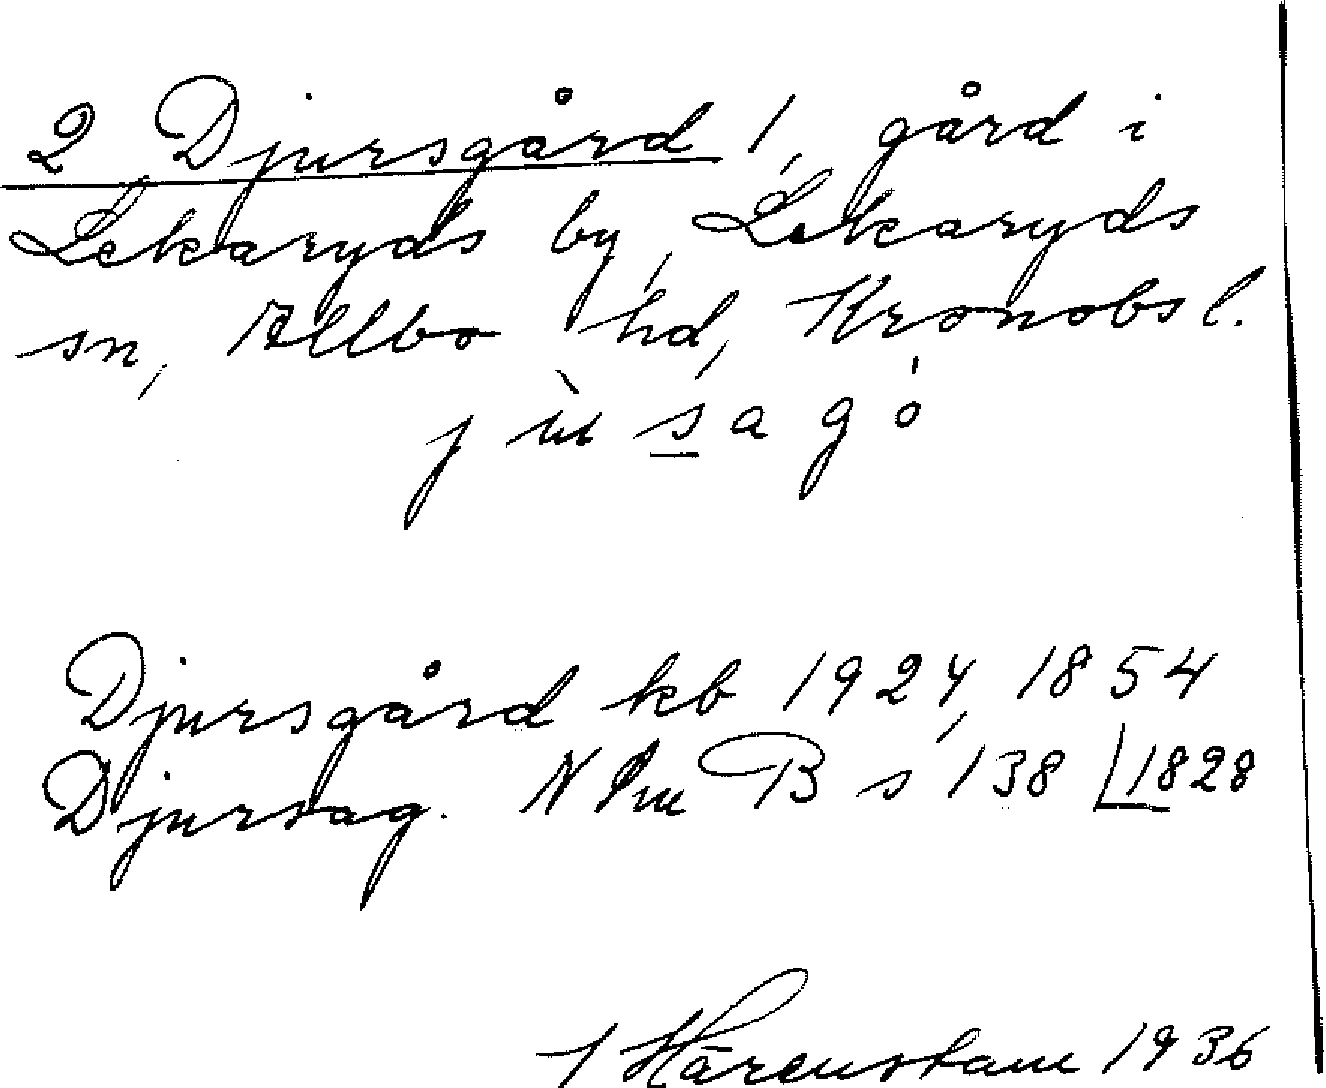 2 Djursgård 1, gård i
Lekaryds by, Lekaryds
sn, Allbo hd, Kronobs l.
j ù s a g ó
Djursgård kb 1924, 1854
Djursag. N Sm B s 138 1828
J Härenstam 1936